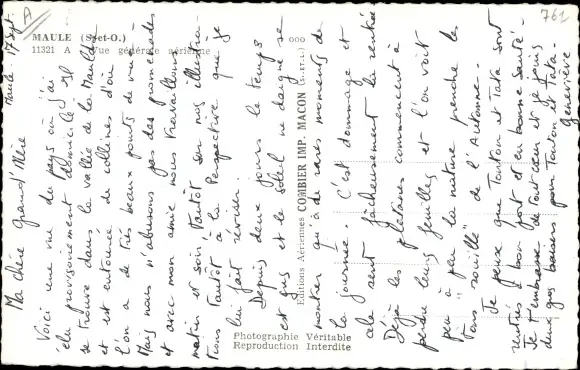 MAULE (S.-et-O.)
11321 A Vue générale aérienne
761
A
Maule 17 sept.
Ma chère grand'Mère
Voici une vue du pays où j'ai
élu provisoirement domicile. Il
se trouve dans la vallée de la Mauldre
et est entouré de collines d'où
l'on a de très beaux points de vue.
Mais nous n'abusons pas des promenades
et avec mon amie nous travaillons
matin et soir tantôt sur nos illustra-
tions tantôt à la Perspective que je
lui fait réviser.
Depuis deux jours le temps
est gris et le soleil ne daigne se
montrer qu'à de rares moments de
la journée. C'est dommage et
cela sent fâcheusement la rentrée
Déjà les platanes commencent à
perdre leurs feuilles et l'on voit
peu à peu la nature prendre les
tons "rouille" de l'Automne.
Je pense que Tonton et Tata sont
rentrés à bon port et en bonne santé.
Je t'embrasse de tout cœur et je joins
deux gros baisers pour Tonton et Tata.
Geneviève
Editions Aériennes COMBIER IMP. MACON (S.-et-L.)
Photographie Véritable
Reproduction Interdite